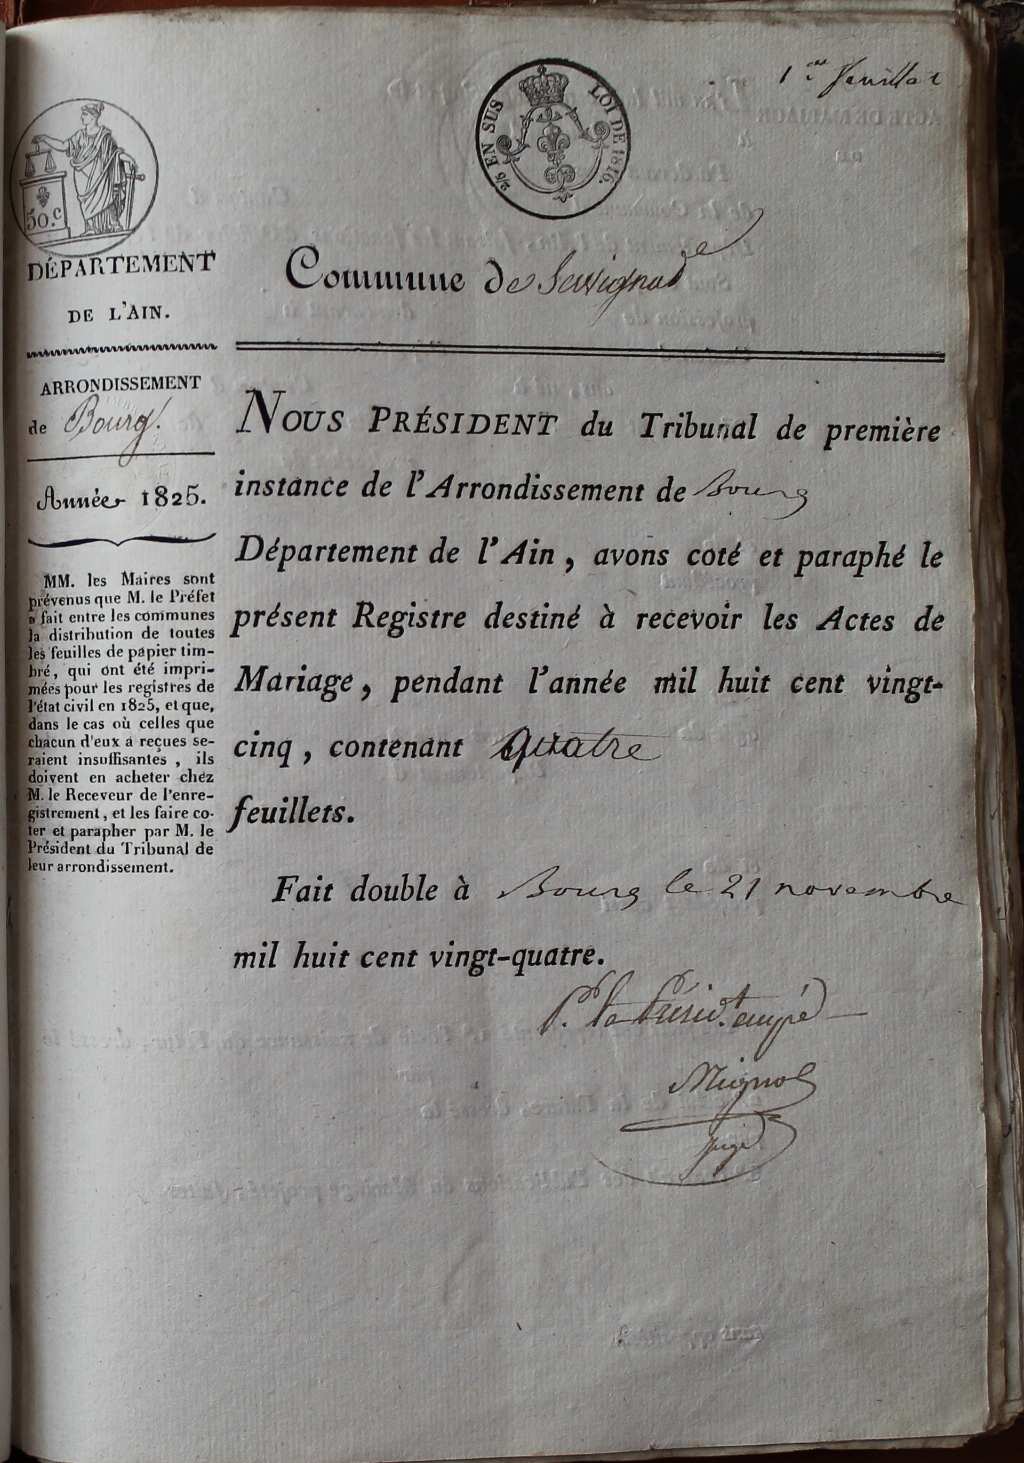 1er feuillet
2/5 EN SUS
LOI DE 1816.
50.c
DÉPARTEMENT
DE L'AIN.
ARRONDISSEMENT
de Bourg
Année 1825.
MM. les Maires sont
prévenus que M. le Préfet
a fait entre les communes
la distribution de toutes
les feuilles de papier tim-
bré, qui ont été impri-
mées pour les registres de
l'état civil en 1825, et que,
dans le cas où celles que
chacun d'eux a reçues se-
raient insuffisantes, ils
doivent en acheter chez
M. le Receveur de l'enre-
gistrement, et les faire co-
ter et parapher par M. le
Président du Tribunal de
leur arrondissement.
Commune de Servignad
NOUS PRÉSIDENT du Tribunal de première
instance de l'Arrondissement de Bourg
Département de l'Ain, avons coté et paraphé le
présent Registre destiné à recevoir les Actes de
Mariage, pendant l'année mil huit cent vingt-
cinq, contenant quatre
feuillets.
Fait double à Bourg le 21 novembre
mil huit cent vingt-quatre.
P. le Présidt empé
Mignol
juge